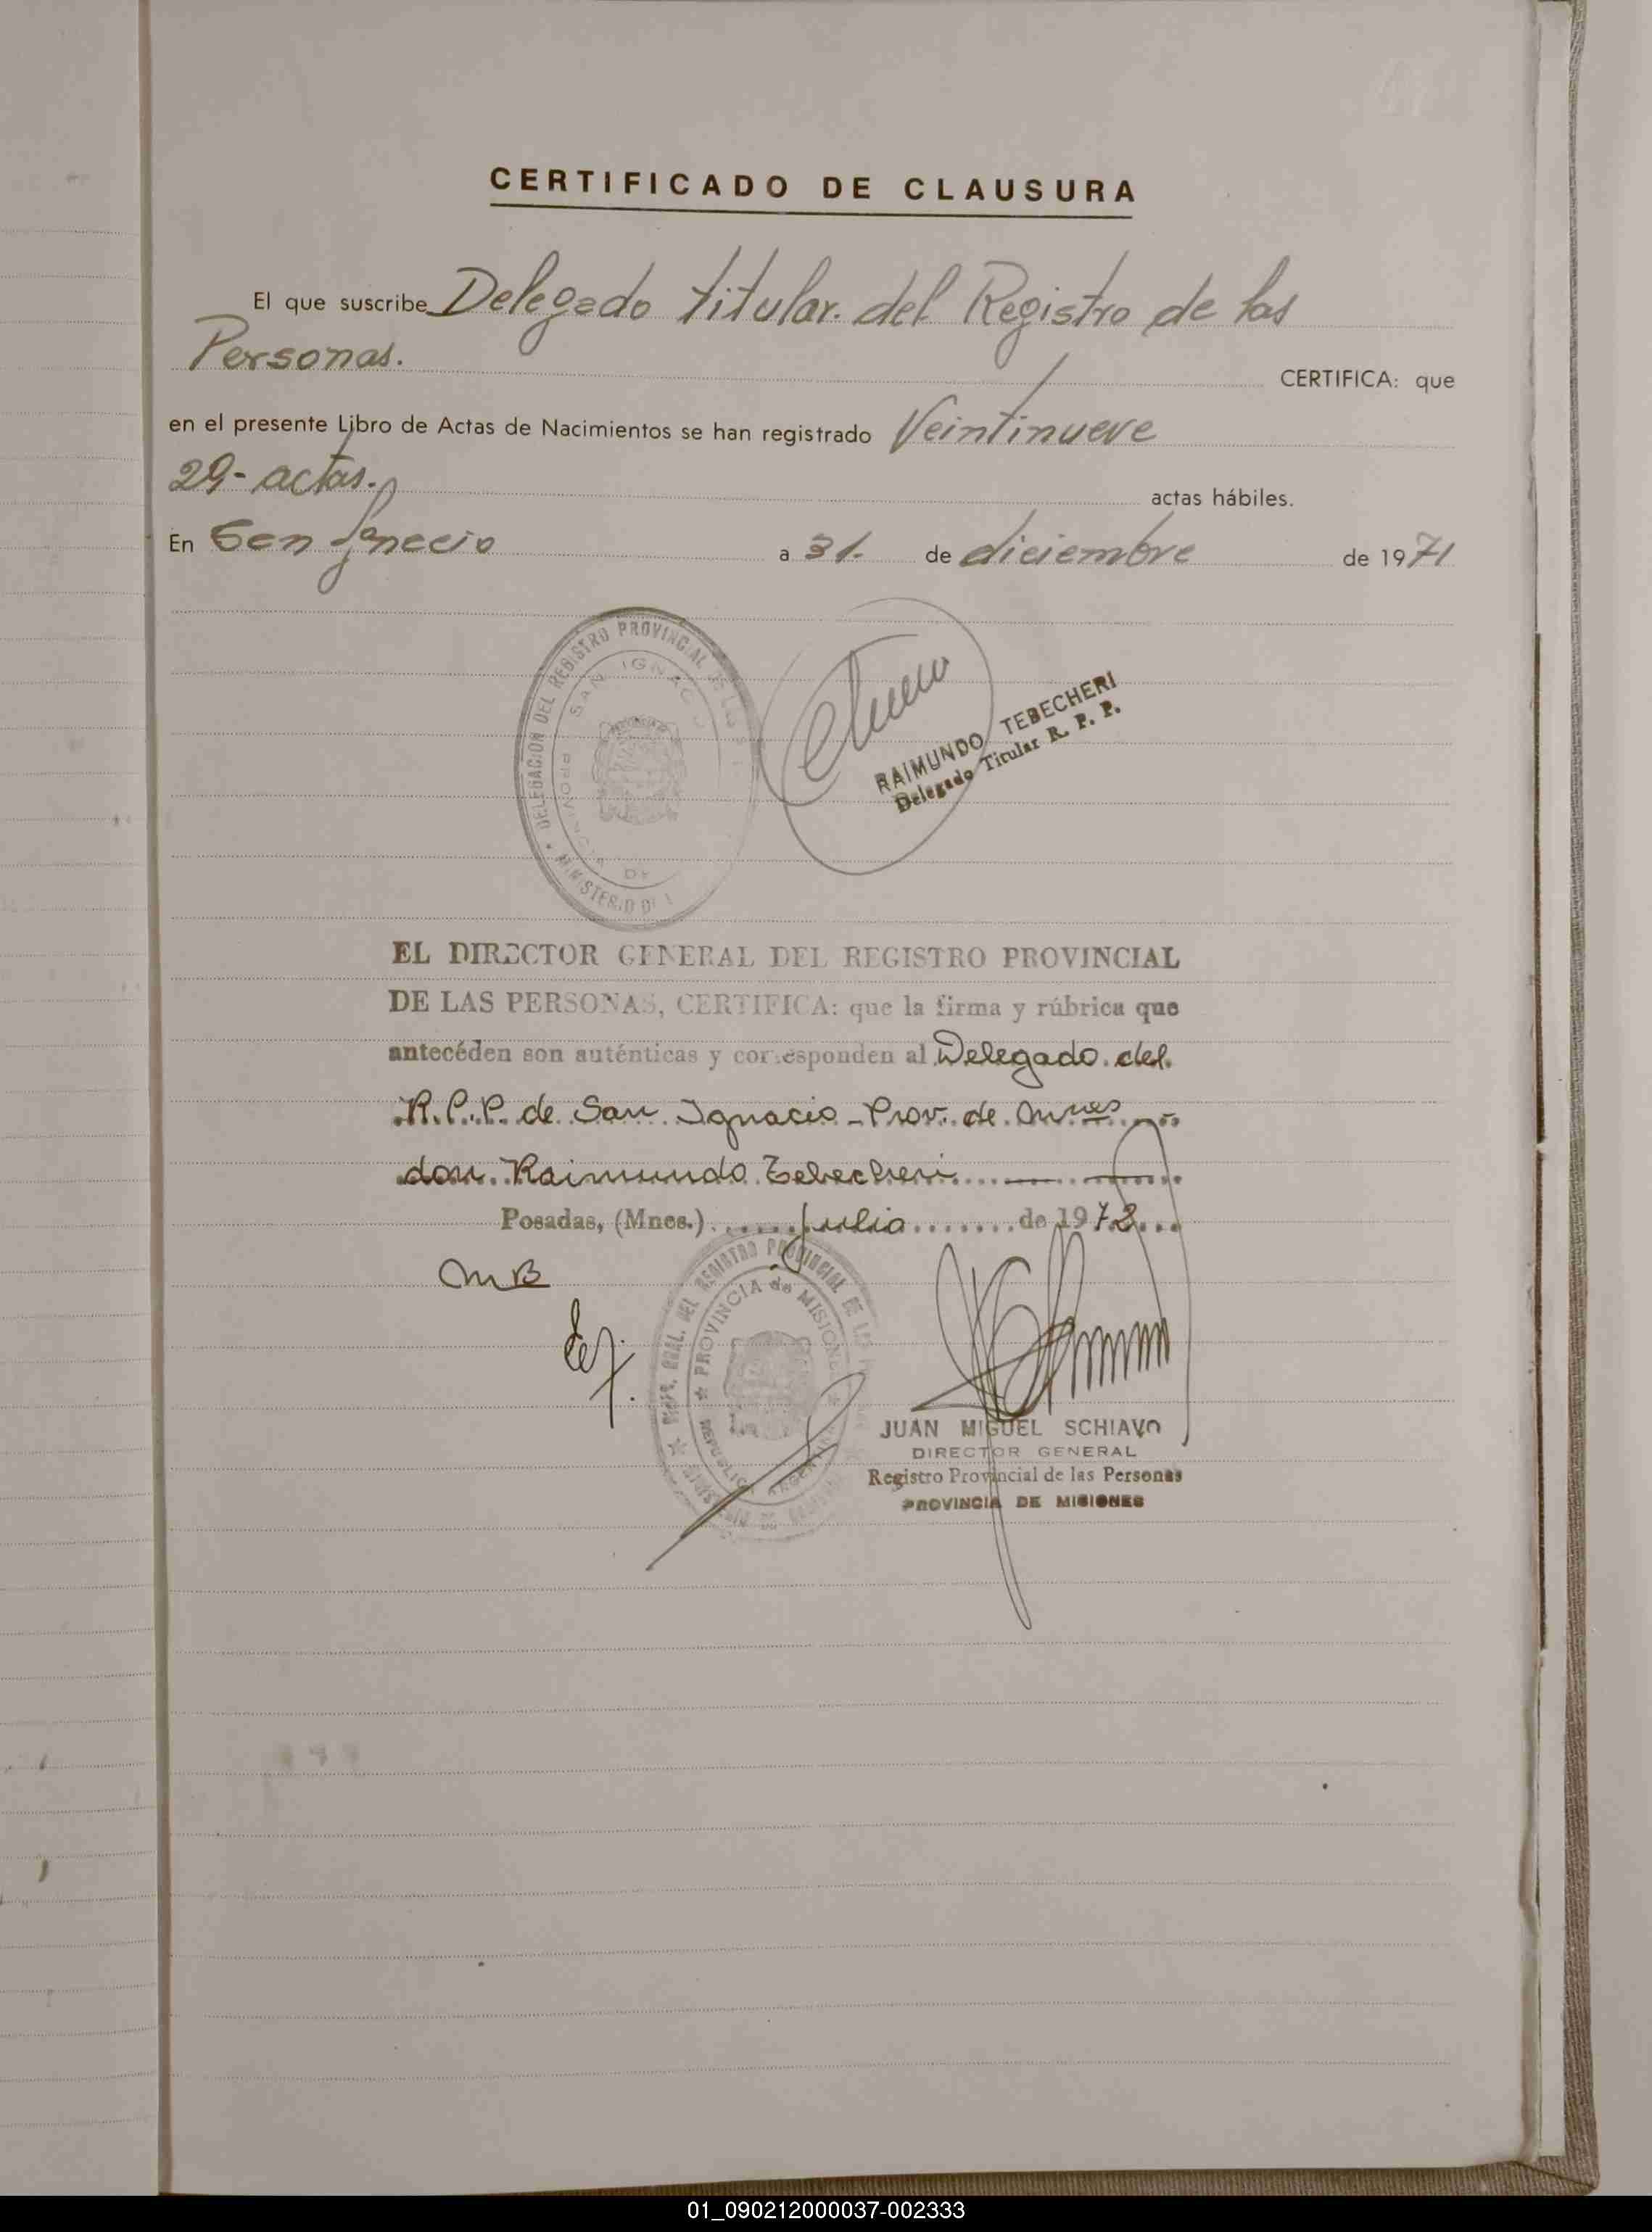 CERTIFICADO DE CLAUSURA
El que suscribe Delegado titular. del Registro de las
Personas. CERTIFICA: que
en el presente Libro de Actas de Nacimientos se han registrado Veintinueve
29- actas. actas hábiles.
En San Ignacio a 31. de diciembre de 1971
DELEGACION DEL REGISTRO PROVINCIAL DE LAS
MINISTERIO DE
SAN IGNACIO
PROVINCIA DE
RAIMUNDO TEBECHERI
Delegado Titular R. P. P.
EL DIRECTOR GENERAL DEL REGISTRO PROVINCIAL
DE LAS PERSONAS, CERTIFICA: que la firma y rúbrica que
antecéden son auténticas y corresponden al Delegado del
R.P.P. de San Ignacio - Prov. de Mnes
don Raimundo Tebecheri
Posadas, (Mnes.) julio de 1972
MB
DEL REGISTRO PROVINCIAL DE LAS
PROVINCIA de MISIONES
REPUBLICA ARGENTINA
JUAN MIGUEL SCHIAVO
DIRECTOR GENERAL
Registro Provincial de las Personas
PROVINCIA DE MISIONES
01_090212000037-002333